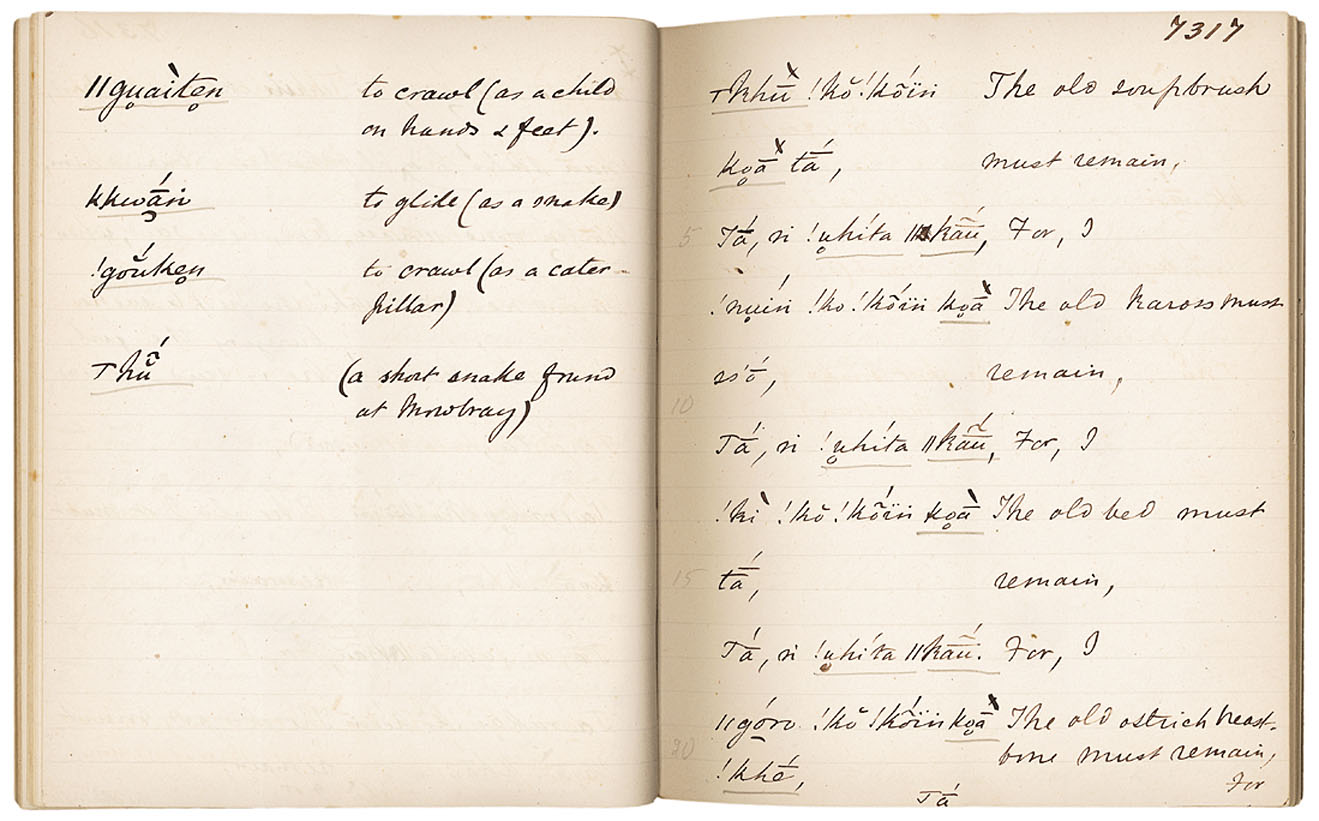 ǁgu̥aìte̥n to crawl (as a child
on hands & feet).
kkwā́n to glide (as a snake)
!góŭke̥n to crawl (as a cater-
pillar)
Ͳhū̃́ (a short snake found
at Mowbray)
7317
Ͳkhū !kŏ !kṓïn The old soupbrush
ko̥ā tā́, must remain,
5 Tā́, n !u̥híta ǁkā̃ū́, For, I
!nu̥ín !ko !kṓïn ko̥ā The old kaross must
ss'ṓ, remain,
10
Tā́, n !u̥híta ǁkā̃ū́, For, I
!kì !kŏ !kṓïn ko̥ā The old bed must
15 tā́, remain,
Tā́, n !u̥híta ǁkā̃ū́. For, I
ǁgóro !kŏ !kṓïn ko̥ā The old ostrich breast-
bone must remain,
20 !khé, For
Tā́